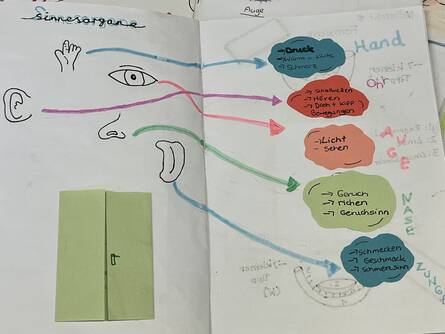 Auge
Sinnesorgane
-> Druck
-> Wärme u. Kälte
-> Schmerz
Hand
-> Schallwellen
-> Hören
-> Dreh + Kipp
Bewegungen
Ohr
-> Licht
- Sehen
AUGE
-> Geruch
-> richen
-> Geruchsinn
NASE
-> Schmecken
-> Geschmack
ZUNGE